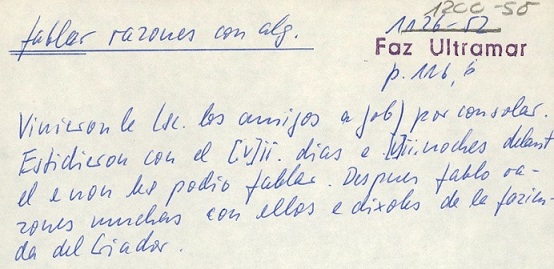 fablar razones con alg.
1200-50
1126-52
Faz Ultramar
p. 116, b
Vinieron le (sc. los amigos a Job) por consolar.
Estidieron con el [v]ii. dias e [v]ii. noches delant
el e non les podio fablar. Despues fablo ra-
zones muchas con ellos e dixoles de la fazien-
da del Criador.